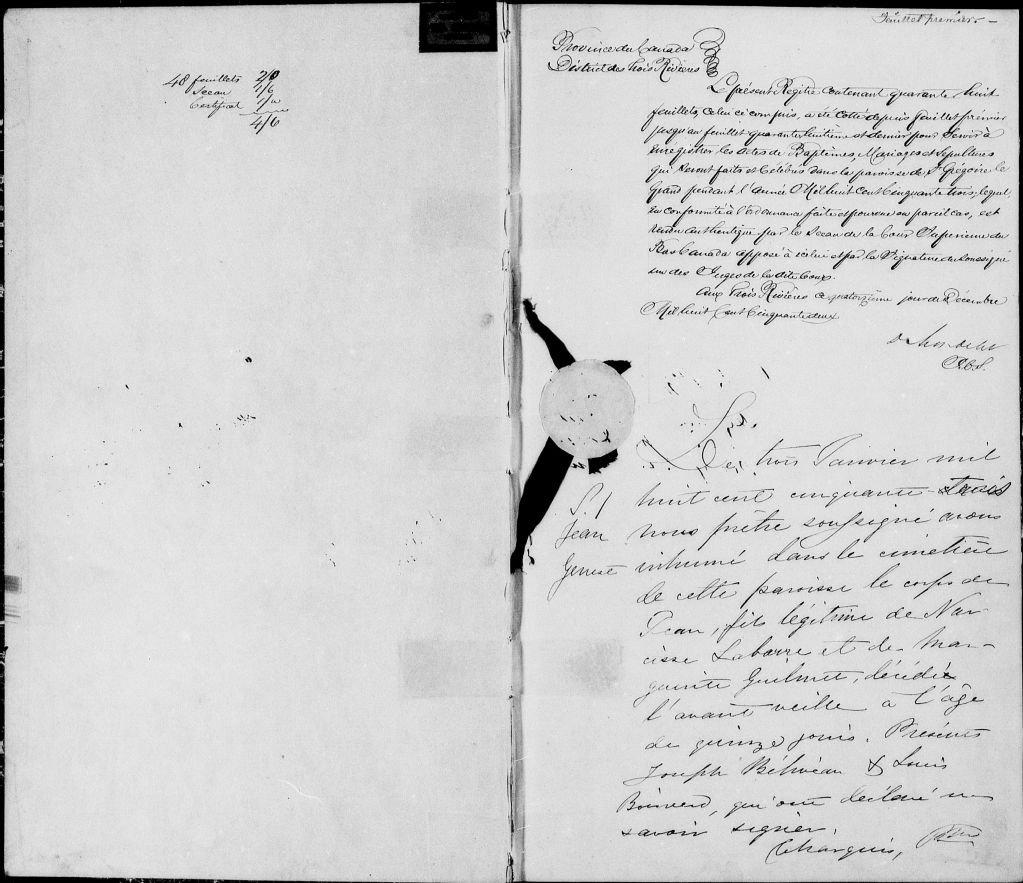 48 feuillets 2/0
Sceau 1/6
Certificat 1/0
4/6
Feuillet premier
Province du Canada
District des Trois Rivières
Le présent Régitre contenant quarante huit
feuillets, celui ci compris, a été cotté depuis feuillet premier
jusqu'au feuillet quarante huitième et dernier pour servir à
enregistrer les actes de Baptêmes, Mariages et Sépultures
qui seront faits et célébrés dans la paroisse de St Grégoire le
Grand pendant l'année Mil huit cent cinquante trois, lequel,
en conformité à l'ordonnance faite et pourvue en pareil cas, est
rendu authentique par le Sceau de la Cour Supérieure du
Bas Canada apposé à icelui et par la Signature du soussigné
un des Juges de la dite Cour.
Aux Trois Rivières ce quatorzième jour de Décembre
Mil huit cent cinquante deux
Le trois Janvier mil
huit cent cinquante-trois
S. 1
Jean
nous prêtre soussigné avons
inhumé dans le cimetière
de cette paroisse le corps de
Jean, fils légitime de Nar-
cisse Labarre et de Mar-
guerite Guilmet, décédé
l'avant veille à l'âge
de quinze jours. Présents
Joseph Béliveau & Louis
Boisverd, qui ont déclaré ne
savoir signer.
Ptre